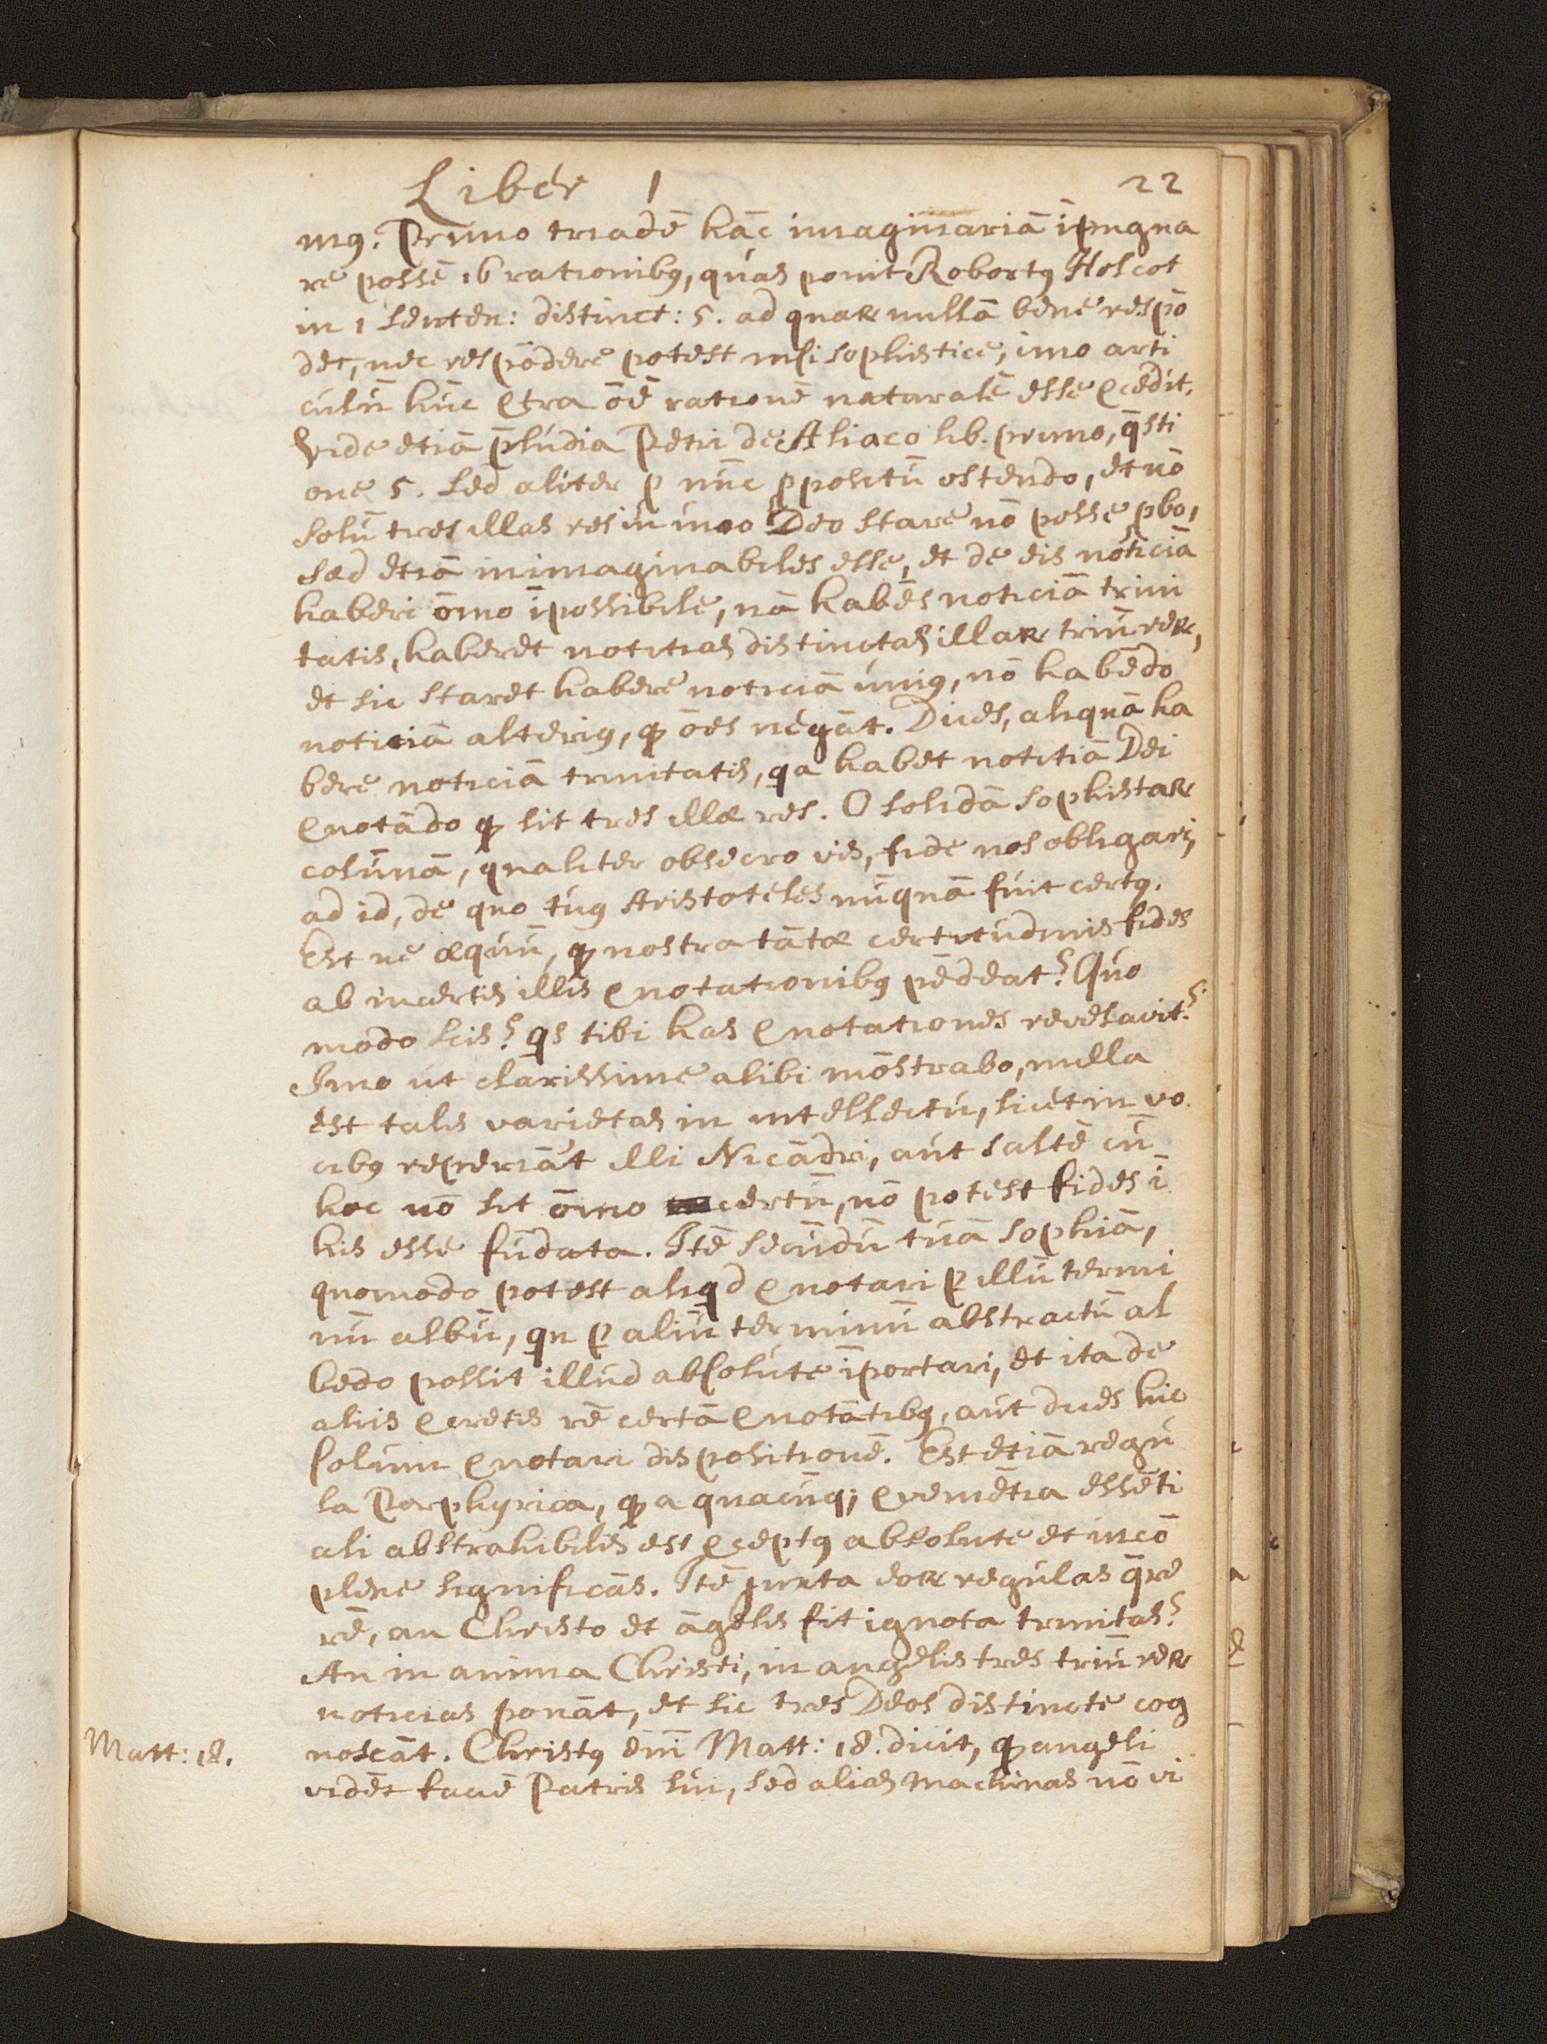 Liber 1 22
mꝰ. Primo triadē hāc imaginariā īpugna
re posse 16 rationibꝰ, quas ponit Robertꝰ Holcot
in 1 senten: distinct: 5. ad quaꝝ nullā bene respō
det, nec respōdere potest nisi sophistice, imo arti
culū hūc ꝯtra ōē rationē naturalē esse ꝯcedit.
Vide etiā p̄ludia Petri de Aliaco lib. primo, q̄sti
one 5. sed aliter ꝑ nūc ꝓpositū ostendo, et nō
solū tres illas res in uno Deo stare nō posse ꝓbo,
sed etiā inimaginabiles esse, et de eis noticiā
haberi ōīno īpossibile, nā habēs noticiā trini
tatis, haberet notitias distinctas illaꝝ triū reꝝ,
et sic staret habere noticiā uniꝰ, nō habēdo
noticiā alteriꝰ, ꝙ ōēs negāt. Dices, aliquā ha
bere noticiā trinitatis, qa habet notitiā Dei
ꝯnotādo ꝙ sit tres illæ res. O solidā sophistaꝝ
colūnā, qualiter obsecro vis, fide nos obligari,
ad id, de quo tuꝰ Aristoteles nūquā fuit certꝰ.
Est ne æquū, ꝙ nostra tātæ certitudinis fides
ab incertis illis ꝯnotationibꝰ pēdeat? Quo
modo scis? qs tibi has ꝯnotationes revelavit?
Imo ut clarissime alibi mōstrabo, nulla
est talis varietas in intellectu, licet in vo
cibꝰ reperiāt illi Nicādri, aut saltē cū
hoc nō sit ōīno certū, nō potest fides ī
his esse fūdata. Itē secūdū tuā sophiā,
quomodo potest aliqd ꝯnotari ꝑ illū termi
nū albū, qn ꝑ aliū terminū abstractū al
bedo possit illud absolute īportari, et ita de
aliis ꝯcretis rē certā ꝯnotātibꝰ, aut dices hic
solum ꝯnotari dispositionē. Est etiā regu
la Porphyrica, ꝙ a quacūq; ꝯveniētia essēti
ali abstrahibilis est ꝯceptꝰ absolute et incō
plexe significās. Itē juxta eoꝝ regulas q̄re
rē, an Christo et āgelis sit ignota trinitas?
An in anima Christi, in angelis tres triū reꝝ
noticias ponāt, et sic tres Deos distincte cog
noscāt. Christꝰ eni Matt: 18. dicit, ꝙ angeli
vidēt faciē Patris sui, sed alias machinas nō vi
Matt: 18.